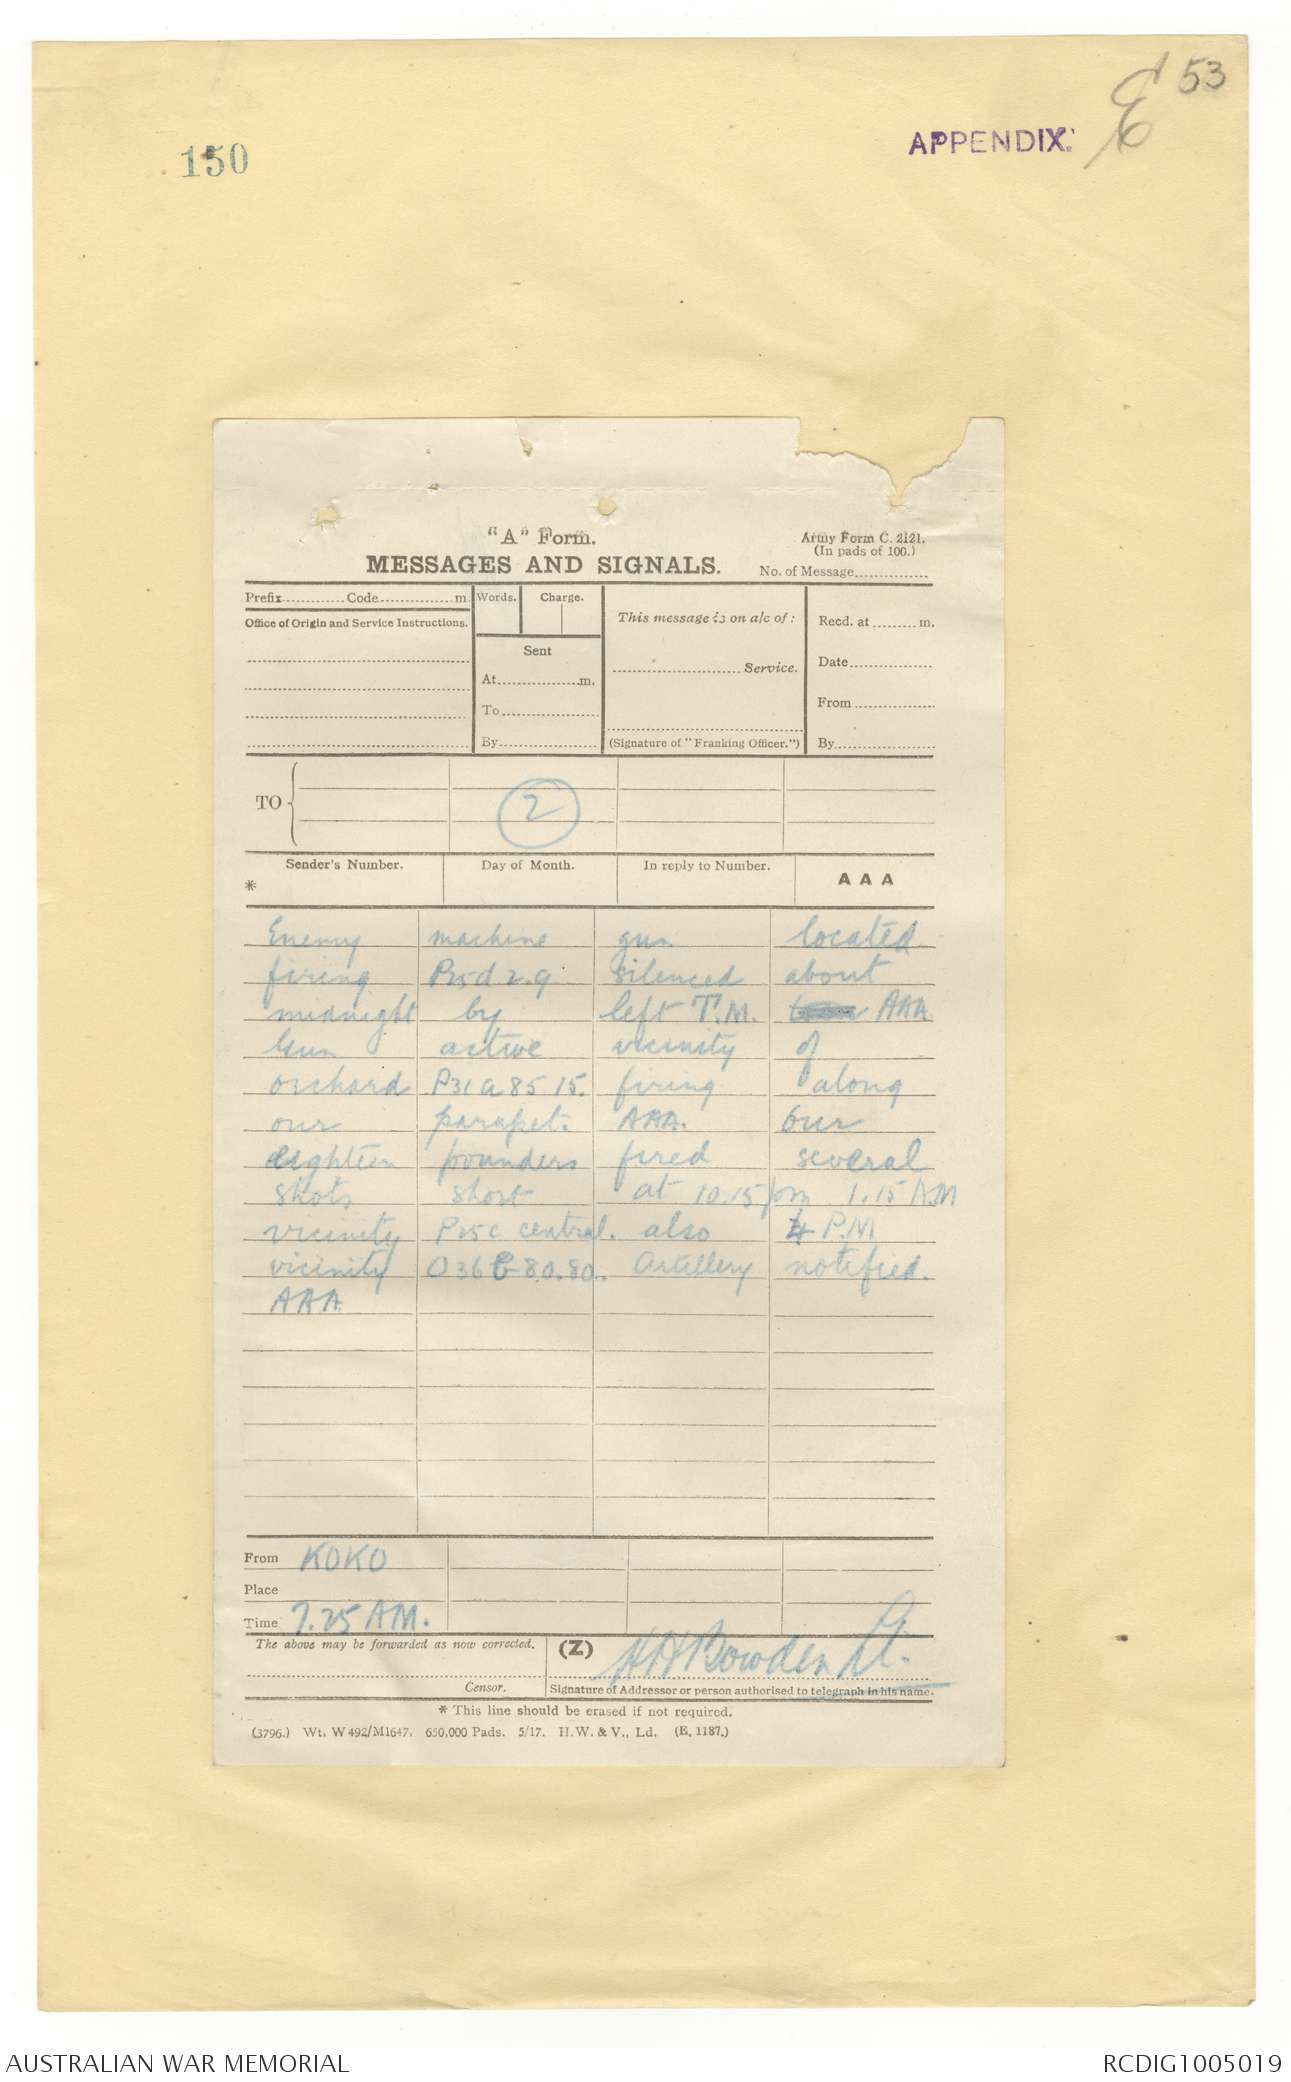 E 53
APPENDIX.
150
"A" Form.
Army Form C. 2121.
(In pads of 100.)
MESSAGES AND SIGNALS.
No. of Message..............
Prefix............Code...............m
Words.
Charge.
Office of Origin and Service Instructions.
Sent
At................m.
To....................
By....................
This message is on a/c of :
..........................Service.
(Signature of "Franking Officer.")
Recd. at ......... m.
Date.................
From .................
By....................
TO
2
Sender's Number.
Day of Month.
In reply to Number.
AAA
*
Enemy machine gun located
firing P25d 2.9 silenced about
midnight by left T.M. AAA
Gun active vicinity of
orchard P31a 85.15. firing along
our parapet. AAA. Our
eighteen pounders fired several
shots short at 10.15 pm 1.15 AM
vicinity P25c central. also 4 P.M
vicinity O36 80.80. Artillery notified.
AAA
From KOKO
Place
Time 7.25 AM.
The above may be forwarded as now corrected.
(Z)
H H Bowden Lt.
Censor.
Signature of Addressor or person authorised to telegraph in his name.
* This line should be erased if not required.
(3796.) Wt. W492/M1647. 650,000 Pads. 5/17. H.W. & V., Ld. (E. 1187.)
AUSTRALIAN WAR MEMORIAL
RCDIG1005019